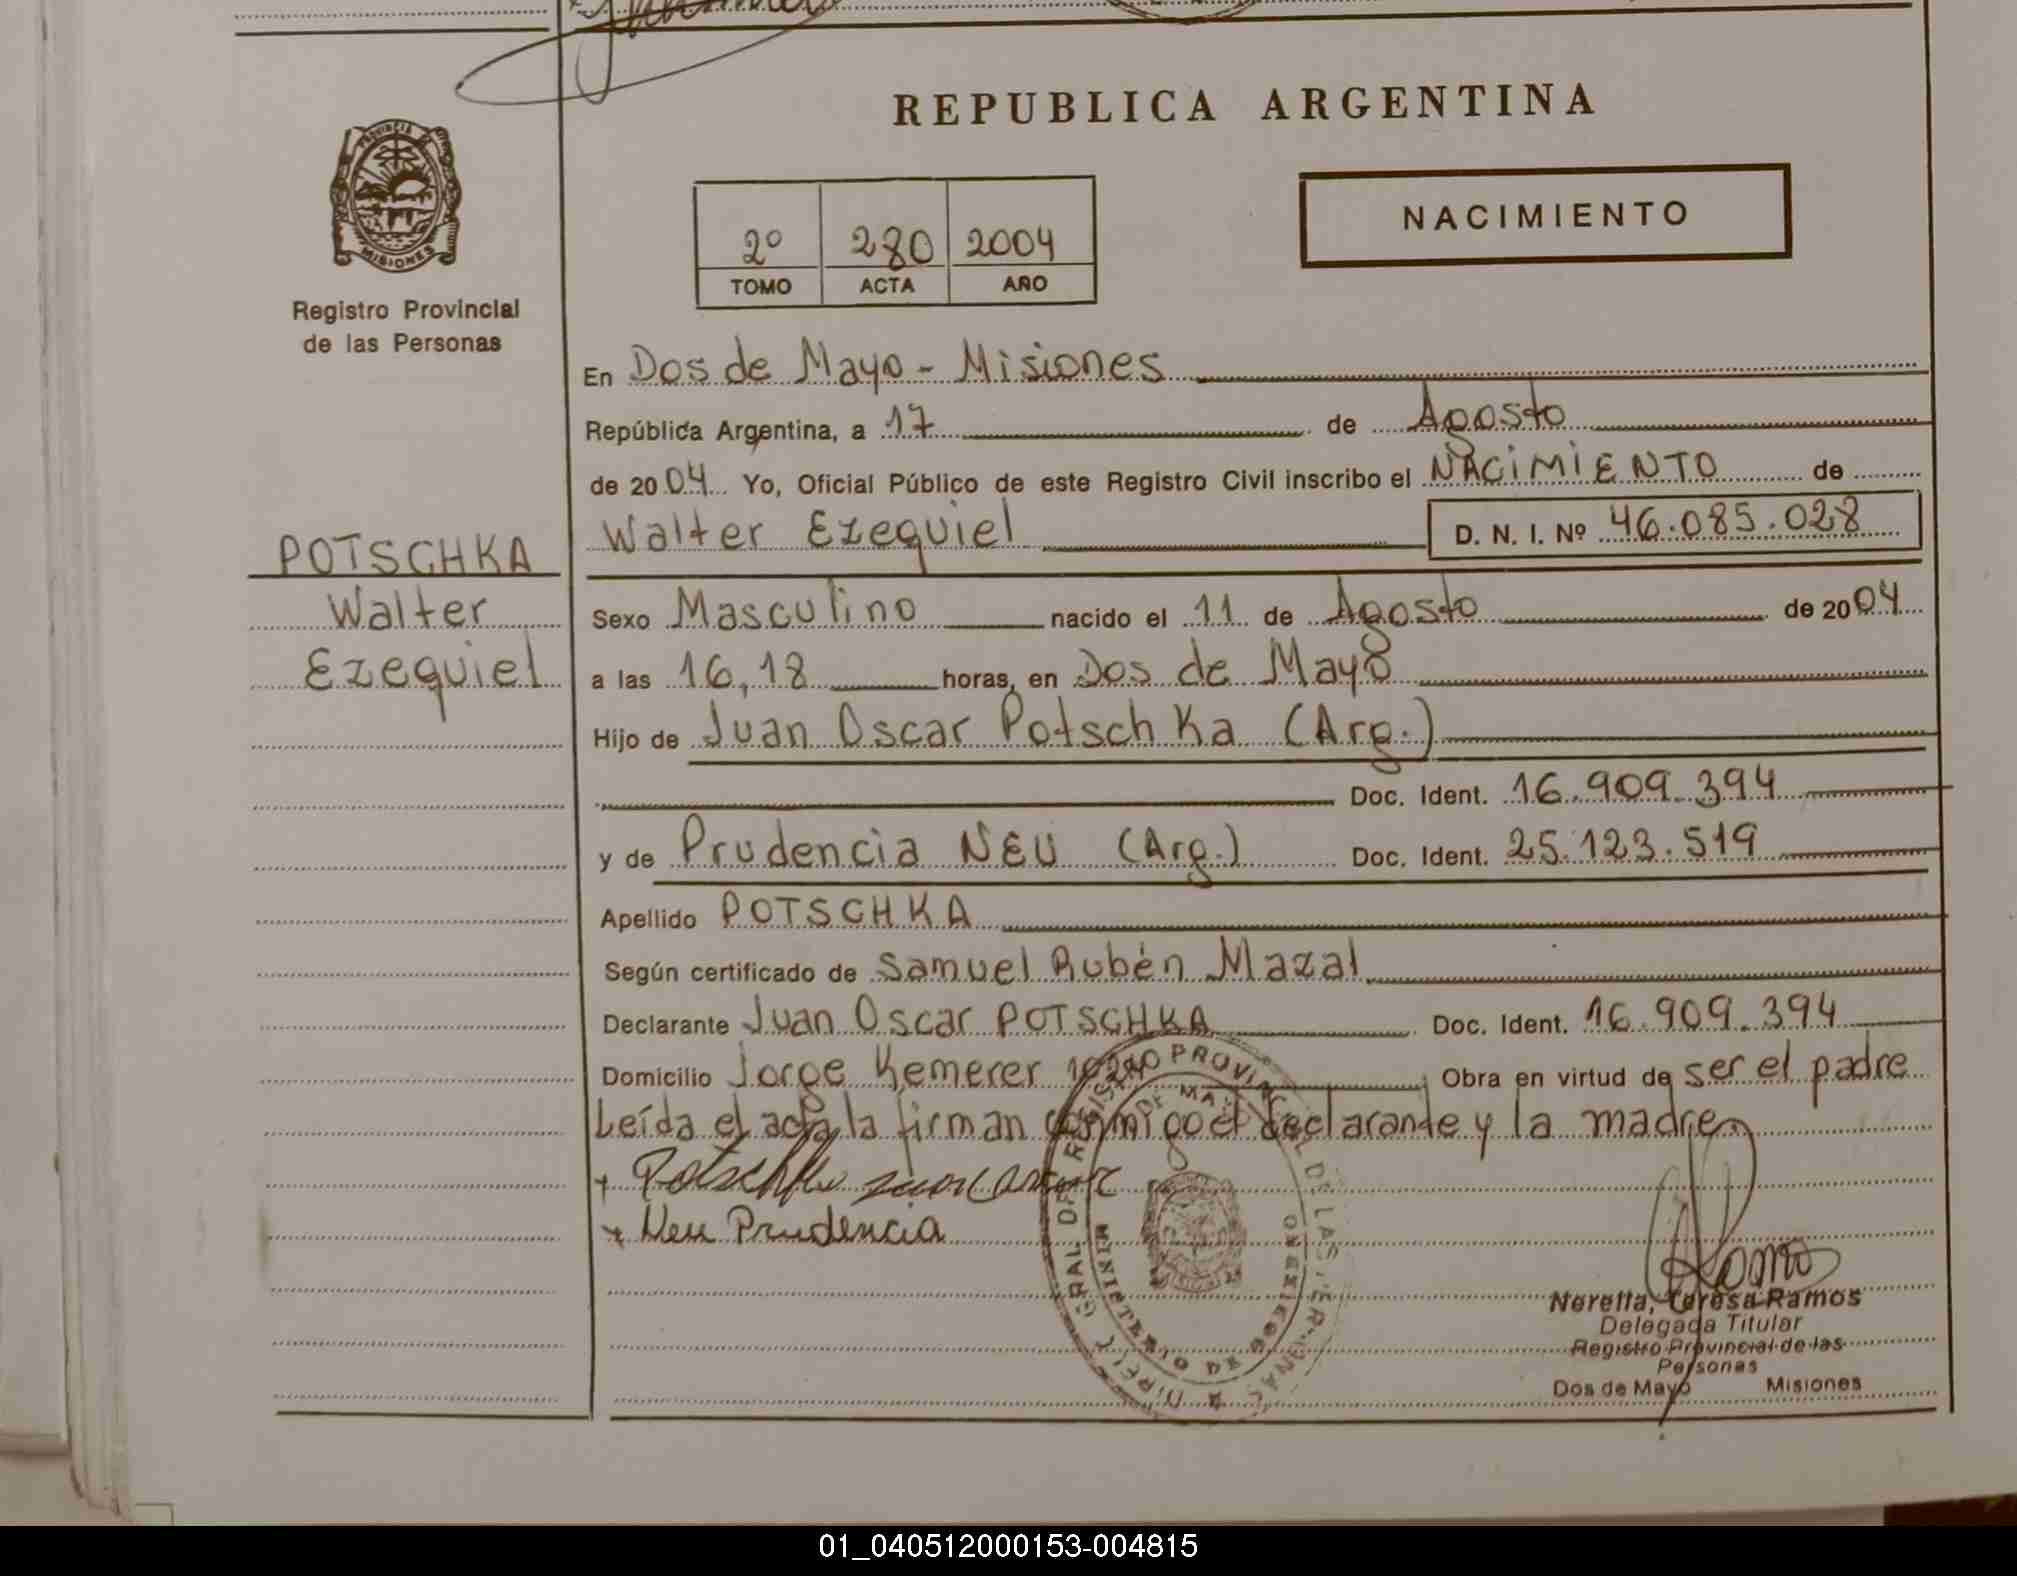 REPUBLICA ARGENTINA
PROVINCIA DE
MISIONES
Registro Provincial
de las Personas
NACIMIENTO
2º 280 2004
TOMO ACTA AÑO
En Dos de Mayo - Misiones
República Argentina, a 17 de Agosto
de 2004 Yo, Oficial Público de este Registro Civil inscribo el NACIMIENTO de
Walter Ezequiel D. N. I. Nº 46.085.028
POTSCHKA
Walter
Ezequiel
Sexo Masculino nacido el 11 de Agosto de 2004
a las 16,18 horas, en Dos de Mayo
Hijo de Juan Oscar Potschka (Arg.)
Doc. Ident. 16.909.394
y de Prudencia NEU (Arg.) Doc. Ident. 25.123.519
Apellido POTSCHKA
Según certificado de Samuel Rubén Mazal
Declarante Juan Oscar POTSCHKA Doc. Ident. 16.909.394
Domicilio Jorge Kemerer Obra en virtud de ser el padre
Leída el acta la firman conmigo el declarante y la madre
+ Potschka Juan Oscar
+ Neu Prudencia
Ramos
Norella, Teresa Ramos
Delegada Titular
Registro Provincial de las
Personas
Dos de Mayo Misiones
01_040512000153-004815